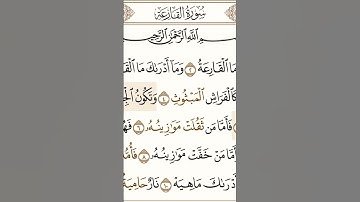 سُورَةُ القَارِعَةِ
ـمِ ٱللَّهِ ٱلرَّحْمَٰنِ ٱلرَّحِيمِ
مَا ٱلْقَارِعَةُ ٢ وَمَآ أَدْرَىٰكَ مَا ٱلْقَـ
كَٱلْفَرَاشِ ٱلْمَبْثُوثِ ٤ وَتَكُونُ ٱلْجِـ
فَأَمَّا مَن ثَقُلَتْ مَوَٰزِينُهُۥ ٦ فَهُـ
أَمَّا مَنْ خَفَّتْ مَوَٰزِينُهُۥ ٨ فَأُمُّـ
أَدْرَىٰكَ مَا هِيَهْ ١٠ نَارٌ حَامِيَةُۢ